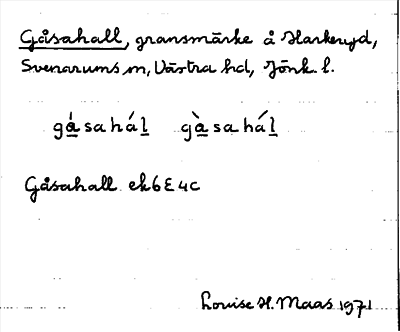 Gåsahall, gränsmärke å Harkeryd,
Svenarums sn, Västra hd, Jönk. l.
gá̱saháḻ gà̱saháḻ
Gåsahall ek 6E4c
Louise H. Maas 1971